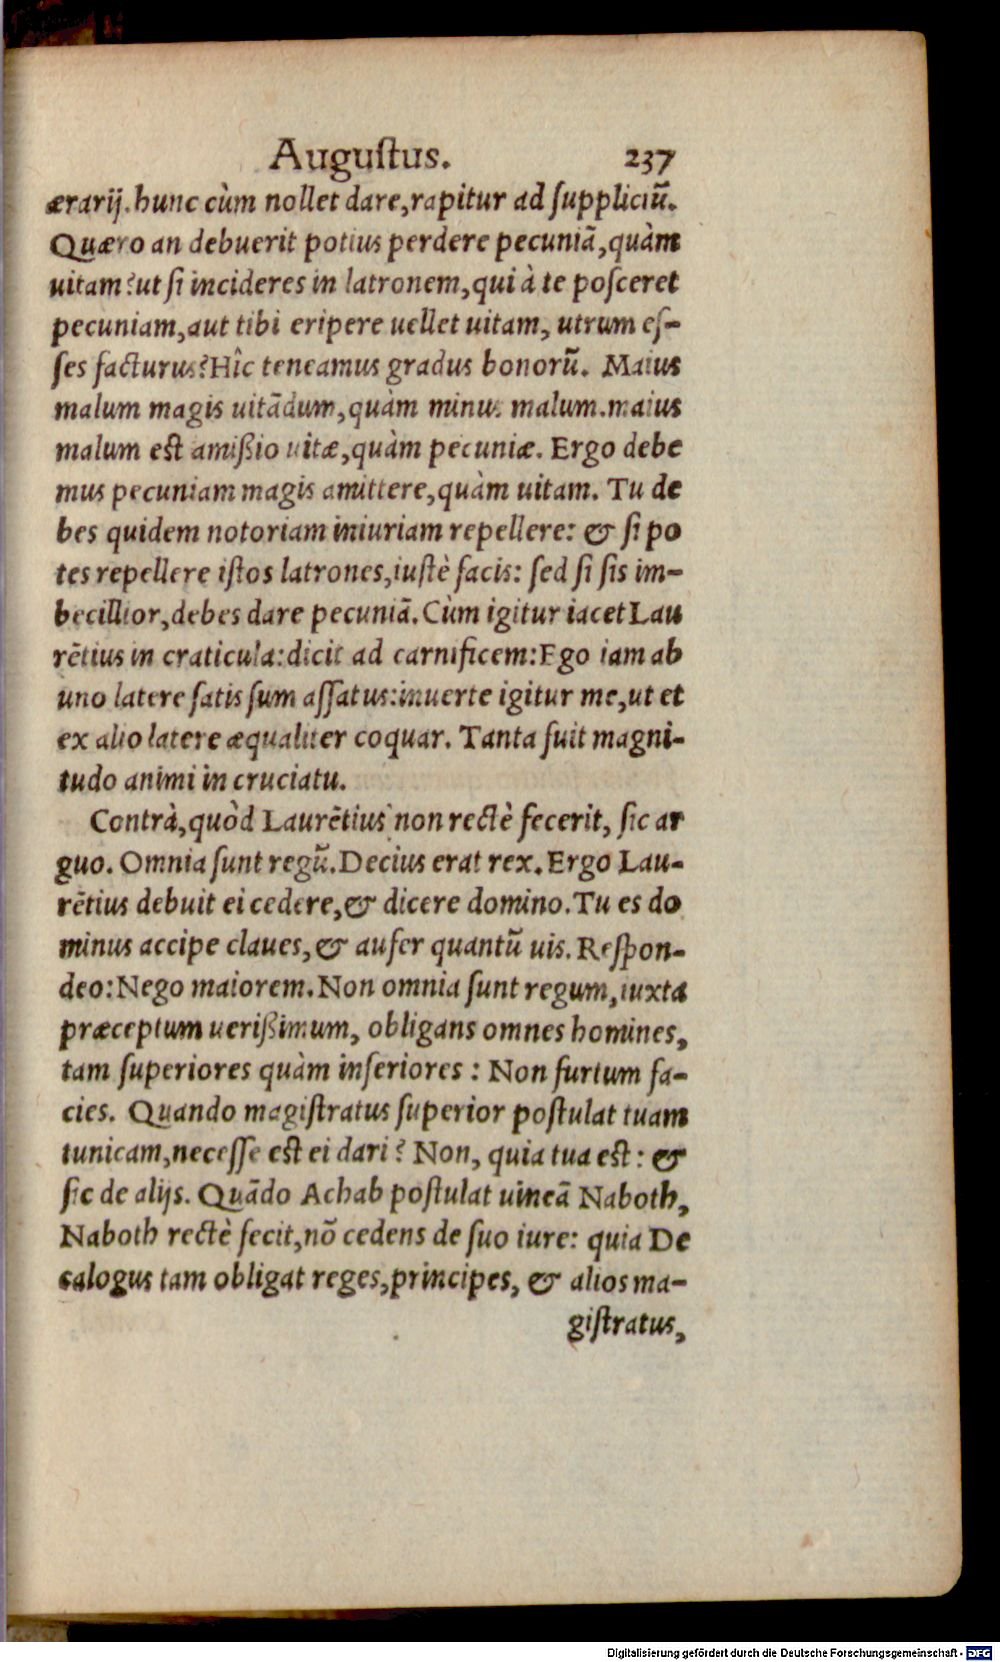 Auguſtus. 237
ærarij. hunc cùm nollet dare, rapitur ad ſuppliciū.
Quæro an debuerit potius perdere pecuniā, quàm
uitam? ut ſi incideres in latronem, qui à te poſceret
pecuniam, aut tibi eripere uellet uitam, utrum eſ-
ſes facturus? Hîc teneamus gradus bonorū. Maius
malum magis uitādum, quàm minus malum. maius
malum eſt amißio uitæ, quàm pecuniæ. Ergo debe
mus pecuniam magis amittere, quàm uitam. Tu de
bes quidem notoriam iniuriam repellere: & ſi po
tes repellere iſtos latrones, iuſtè facis: ſed ſi ſis im-
becillior, debes dare pecuniā. Cùm igitur iacet Lau
rētius in craticula: dicit ad carnificem: Ego iam ab
uno latere ſatis ſum aſſatus: inuerte igitur me, ut et
ex alio latere æqualiter coquar. Tanta fuit magni-
tudo animi in cruciatu.
Contrà, quòd Laurētius non rectè fecerit, ſic ar
guo. Omnia ſunt regū. Decius erat rex. Ergo Lau-
rētius debuit ei cedere, & dicere domino. Tu es do
minus accipe claues, & aufer quantū uis. Reſpon-
deo: Nego maiorem. Non omnia ſunt regum, iuxta
præceptum uerißimum, obligans omnes homines,
tam ſuperiores quàm inferiores: Non furtum fa-
cies. Quando magiſtratus ſuperior poſtulat tuam
tunicam, neceſſe eſt ei dari? Non, quia tua eſt: &
ſic de alijs. Quādo Achab poſtulat uineā Naboth,
Naboth rectè fecit, nō cedens de ſuo iure: quia De
calogus tam obligat reges, principes, & alios ma-
giſtratus,
Digitalisierung gefördert durch die Deutsche Forschungsgemeinschaft - DFG